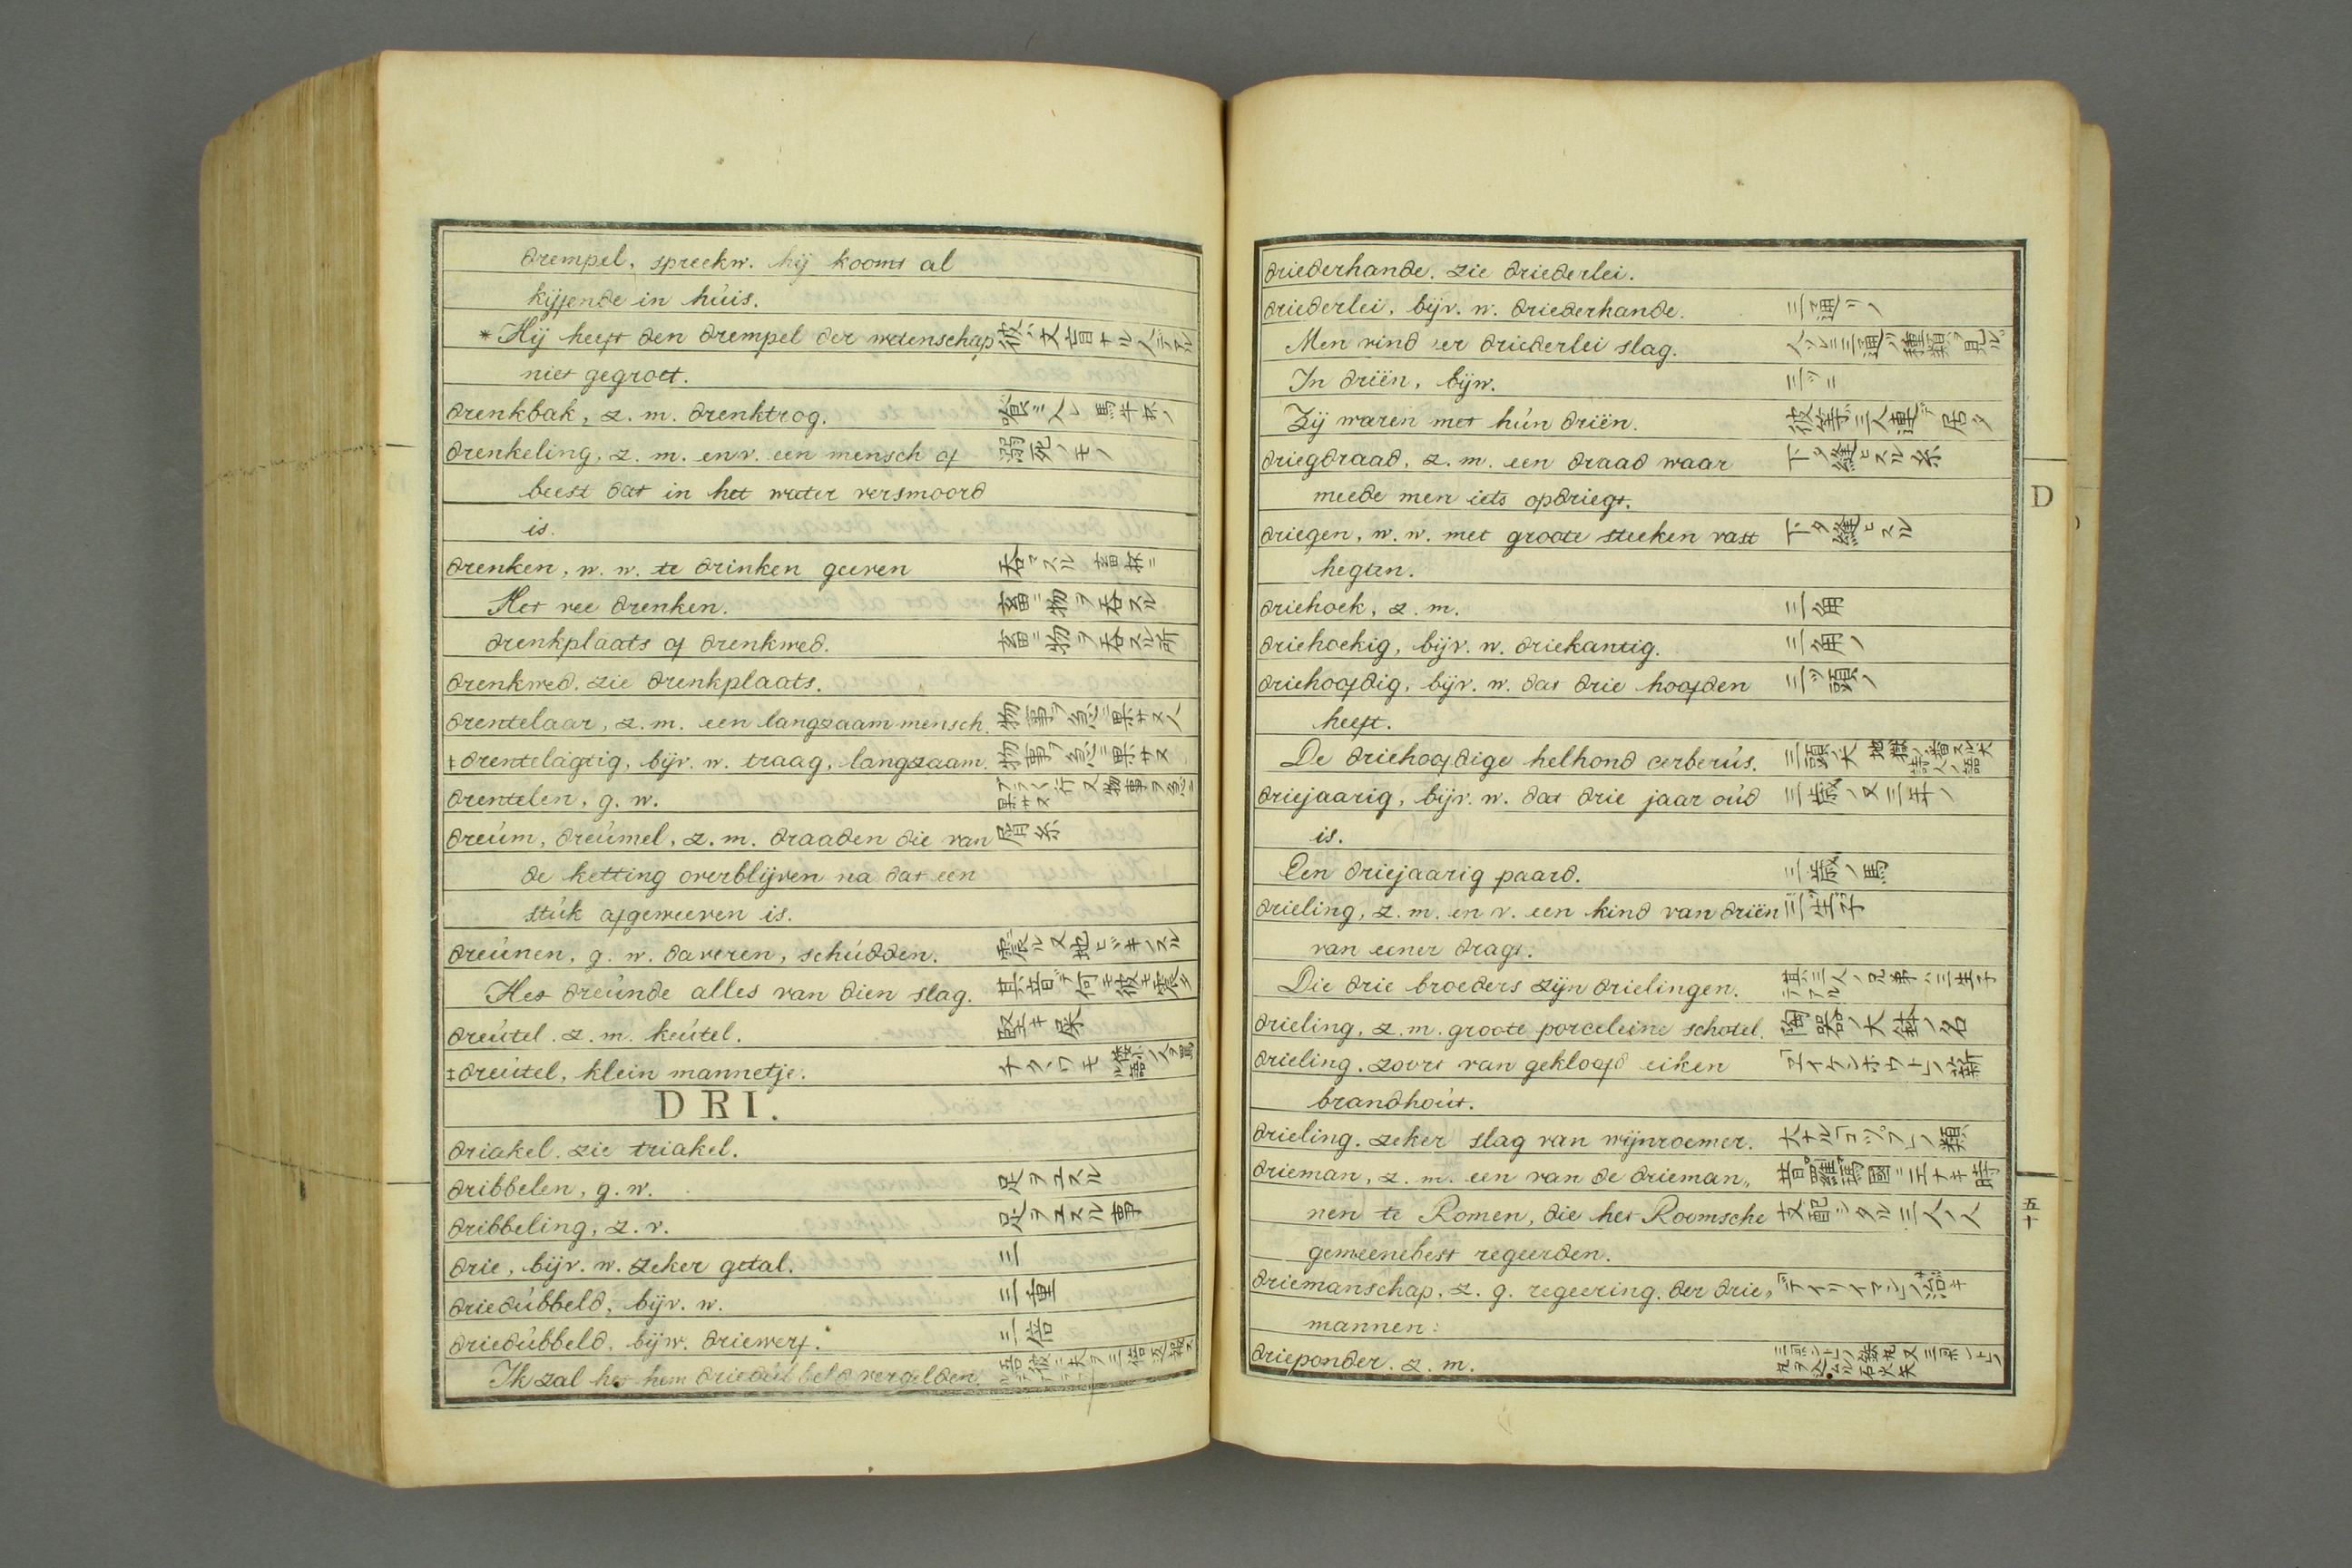 drempel, spreekw. hij kooms al
kijfende in húis.
* Hij heeft den drempel der wetenschap 彼ハ文盲ナル人デアル
niet gegroet.
drenkbak, z. m. drenktrog.
drenkeling, z. m. en v. een mensch of 溺死ノモノ
beest dat in het water versmoord
is.
drenken, w. w. te drinken geeven 呑マスル 畜杯ニ
Het vee drenken. 畜ニ物ヲ呑スル
drenkplaats of drenkwed. 畜ニ物ヲ呑スル所
drenkwed. zie drenkplaats.
drentelaar, z. m. een langzaam mensch. 物事ヲ急ニ果サヌ人
‡drentelagtig, bijv. w. traag, langzaam. 物事ヲ急ニ果サヌ
drentelen, g. w.
dreúm, dreúmel, z. m. draaden die van 屑糸
de ketting overblijven na dat een
stúk afgeweeven is.
dreúnen, g. w. daveren, schúdden. 震ル又地ビヾキノスル
Het dreúnde alles van dien slag. 其音デ何モ彼モ震タ
dreútel. z. m. keútel. 堅キ屎
‡dreútel, klein mannetje.
DRI.
driakel. zie triakel.
dribbelen, g. w.
dribbeling, z. v.
drie, bijv. w. zeker getal. 三
driedúbbeld, bijv. w. 三重
driedúbbeld. bijw. driewerf. 三倍
Ik zal het hem driedúbbeld vergelden.
driederhande. zie driederlei.
driederlei, bijv. w. driederhande. 三通リノ
Men vind er driederlei slag.
In driën, bijw. 三ツニ
Zij waren met hún driën. 彼等ハ三人連デ居タ
driegdraad, z. m. een draad waar 下タ縫ヒスル糸
meede men iets opdriegt.
driegen, w. w. met groote steeken vast 下タ縫ヒスル
hegten.
driehoek, z. m. 三角
driehoekig, bijv. w. driekantig. 三角ノ
driehoofdig, bijv. w. dat drie hoofden 三ツ頭ノ
heeft.
De driehoofdige helhond cerberús. 三頭ノ犬
driejaarig, bijv. w. dat drie jaar oúd 三歳ノ又三年ノ
is.
Een driejaarig paard. 三歳ノ馬
drieling, z. m. en v. een kind van driën 三ツ生子
van eener dragt.
Die drie broeders zijn drielingen. 其三人ノ兄弟ハ三生子デアル
drieling, z. m. groote porceleine schotel. 陶器ノ大鉢ノ名
drieling. zoort van gekloofd eiken 「エイケンホウト」ノ薪
brandhoút.
drieling. zeker slag van wijnroemer. 大ナル「コップ」ノ類
drieman, z. m. een van de drieman„ 昔羅瑪國ニ王ナキ時
nen te Romen, die het Roomsche 支配シタル三人ノ人
gemeenebest regeerden.
driemanschap, z. g. regeering. der drie„
mannen.
drieponder. z. m.
D
五十